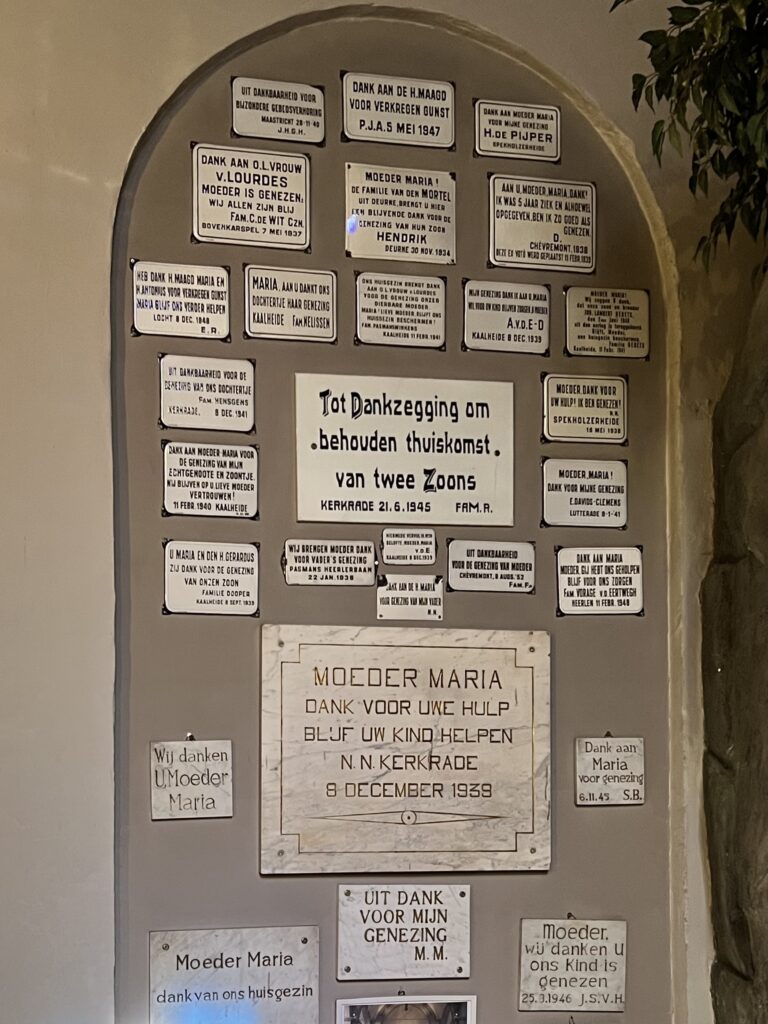 UIT DANKBAARHEID VOOR
BIJZONDERE GEBEDSVERHORING
MAASTRICHT 28-11-40
J.H.G.H.
DANK AAN DE H.MAAGD
VOOR VERKREGEN GUNST
P.J.A. 5 MEI 1947
DANK AAN MOEDER MARIA
VOOR MIJNE GENEZING
H. DE PIJPER
SPEKHOLZERHEIDE
DANK AAN O.L.VROUW
V. LOURDES
MOEDER IS GENEZEN;
WIJ ALLEN ZIJN BLIJ
FAM. C. DE WIT CZN.
BOVENKARSPEL 7 MEI 1937
MOEDER MARIA!
DE FAMILIE VAN DEN MORTEL
UIT DEURNE, BRENGT U HIER
EEN BLIJVENDE DANK VOOR DE
GENEZING VAN HUN ZOON
HENDRIK
DEURNE 30 NOV. 1934
AAN U, MOEDER, MARIA, DANK!
IK WAS 5 JAAR ZIEK EN ALHOEWEL
OPGEGEVEN, BEN IK ZO GOED ALS
GENEZEN.
D.
CHÈVREMONT, 1938
DEZE EX VOTO WERD GEPLAATST 15 FEBR. 1939
HEB DANK H. MAAGD MARIA EN
H. ANTONIUS VOOR VERKREGEN GUNST
MARIA BLIJF ONS VERDER HELPEN
LOCHT 8 DEC. 1948
E.R.
MARIA, AAN U DANKT ONS
DOCHTERTJE HAAR GENEZING
KAALHEIDE FAM. NELISSEN
ONS HUISGEZIN BRENGT DANK
AAN O.L.VROUW V. LOURDES
VOOR DE GENEZING ONZER
DIERBARE MOEDER
MARIA LIEVE MOEDER BLIJFT ONS
HUISGEZIN BESCHERMEN!
FAM. PAGMANSWINKENS
KAALHEIDE 11 FEBR. 1941
MIJN GENEZING DANK IK AAN U, MARIA
WIL VOOR UW KIND BLIJVEN ZORGEN, O MOEDER
A.v.D.E-D
KAALHEIDE 8 DEC. 1939
MOEDER MARIA!
Wij zeggen U dank,
JOS. LAMBERT GEURTS,
Familie GEURTS
Kaalheide, 11 Febr. 1941
UIT DANKBAARHEID VOOR DE
GENEZING VAN ONS DOCHTERTJE
FAM. HENSGENS
KERKRADE, 8 DEC. 1941
Tot Dankzegging om
behouden thuiskomst
van twee Zoons
KERKRADE 21.6.1945 FAM. R.
MOEDER DANK VOOR
UW HULP! IK BEN GENEZEN!
N.N.
SPEKHOLZERHEIDE
16 MEI 1938
DANK AAN MOEDER MARIA VOOR
DE GENEZING VAN MIJN
ECHTGENOTE EN ZOONTJE.
WIJ BLIJVEN OP U LIEVE MOEDER
VERTROUWEN!
11 FEBR. 1940 KAALHEIDE
MOEDER, MARIA!
DANK VOOR MIJNE GENEZING
E. DAVIDS-CLEMENS
LUTTERADE 8-1-'41
U MARIA EN DEN H. GERARDUS
ZIJ DANK VOOR DE GENEZING
VAN ONZEN ZOON
FAMILIE DOOPER
KAALHEIDE 8 SEPT. 1939
WIJ BRENGEN MOEDER DANK
VOOR VADER'S GENEZING
PAGMANS HEERLERBAAN
22 JAN. 1938
BELOFTE, MOEDER, MARIA
v.D.E
KAALHEIDE 8 DEC. 1939
DANK AAN DE H. MARIA
VOOR GENEZING VAN MIJN VADER
N.N.
UIT DANKBAARHEID
VOOR DE GENEZING VAN MOEDER
CHÈVREMONT, 8 AUG. '52
FAM. F.
DANK AAN MARIA
MOEDER, GIJ HEBT ONS GEHOLPEN
BLIJF VOOR ONS ZORGEN
FAM. VORAGE v.d. EERTWEGH
HEERLEN 11 FEBR. 1948
MOEDER MARIA
DANK VOOR UWE HULP
BLIJF UW KIND HELPEN
N.N. KERKRADE
8 DECEMBER 1939
Wij danken
U, Moeder
Maria
Dank aan
Maria
voor genezing
6.11.45 S.B.
UIT DANK
VOOR MIJN
GENEZING
M.M.
Moeder Maria
dank van ons huisgezin
Moeder,
wij danken U
ons Kind is
genezen
25.3.1946 J.S.V.H.